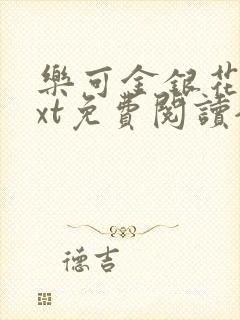 樂可金銀花
xt免費閱讀
德吉